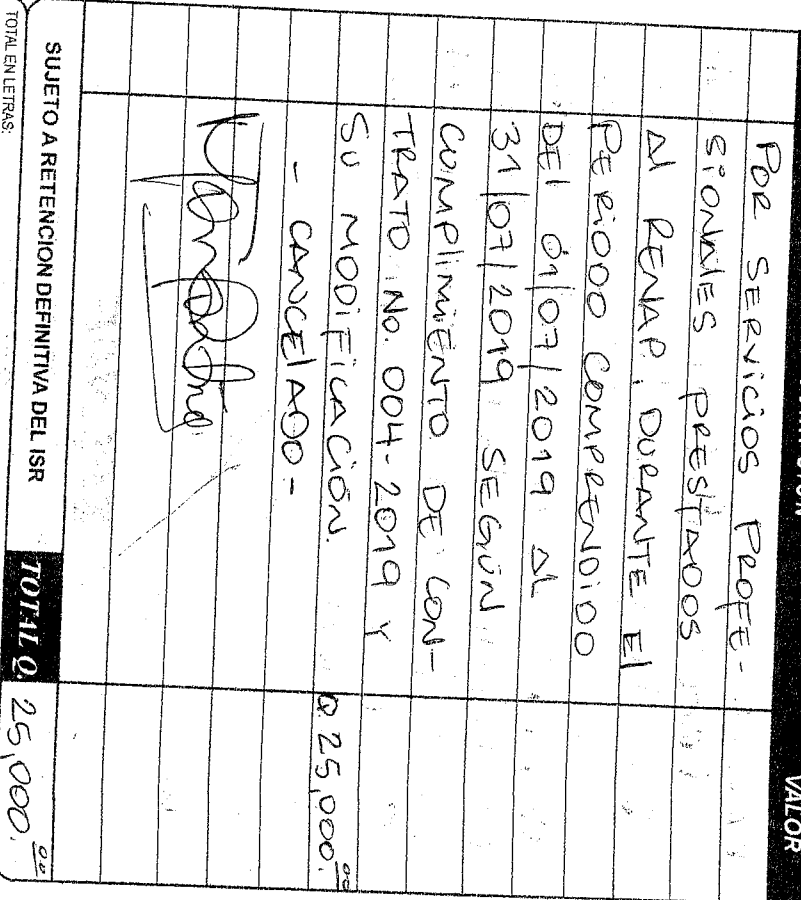 VALOR
POR SERVICIOS PROFE-
SIONALES PRESTADOS
Al RENAP, DURANTE El
PERIODO COMPRENDIDO
DEl 01/07/2019 AL
31/07/2019 SEGÚN
CUMPlIMIENTO DE CON-
TRATO No. 004-2019 Y
SU MODIFICACIÓN. Q 25,000.00
- CANCElADO -
SUJETO A RETENCION DEFINITIVA DEL ISR TOTAL Q. 25,000.00
TOTAL EN LETRAS: